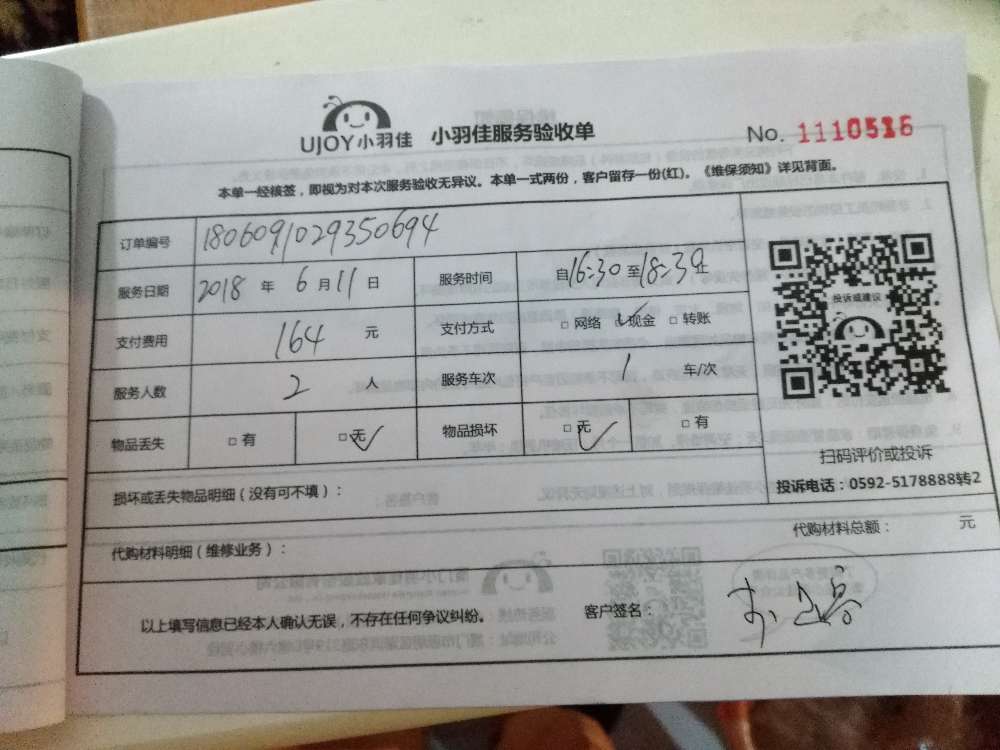 UJOY小羽佳 小羽佳服务验收单 No. 1110516
本单一经核签，即视为对本次服务验收无异议。本单一式两份，客户留存一份(红)。《维保须知》详见背面。
订单编号 1806091029350694
服务日期 2018 年 6 月 11 日 服务时间 自16:30至18:30止
支付费用 164 元 支付方式 □ 网络 □ 现金 □ 转账
服务人数 2 人 服务车次 1 车/次
物品丢失 □ 有 □ 无 物品损坏 □ 无 □ 有
投诉或建议
扫码评价或投诉
投诉电话：0592-5178888转2
损坏或丢失物品明细（没有可不填）：
代购材料明细（维修业务）： 代购材料总额： 元
以上填写信息已经本人确认无误，不存在任何争议纠纷。 客户签名：